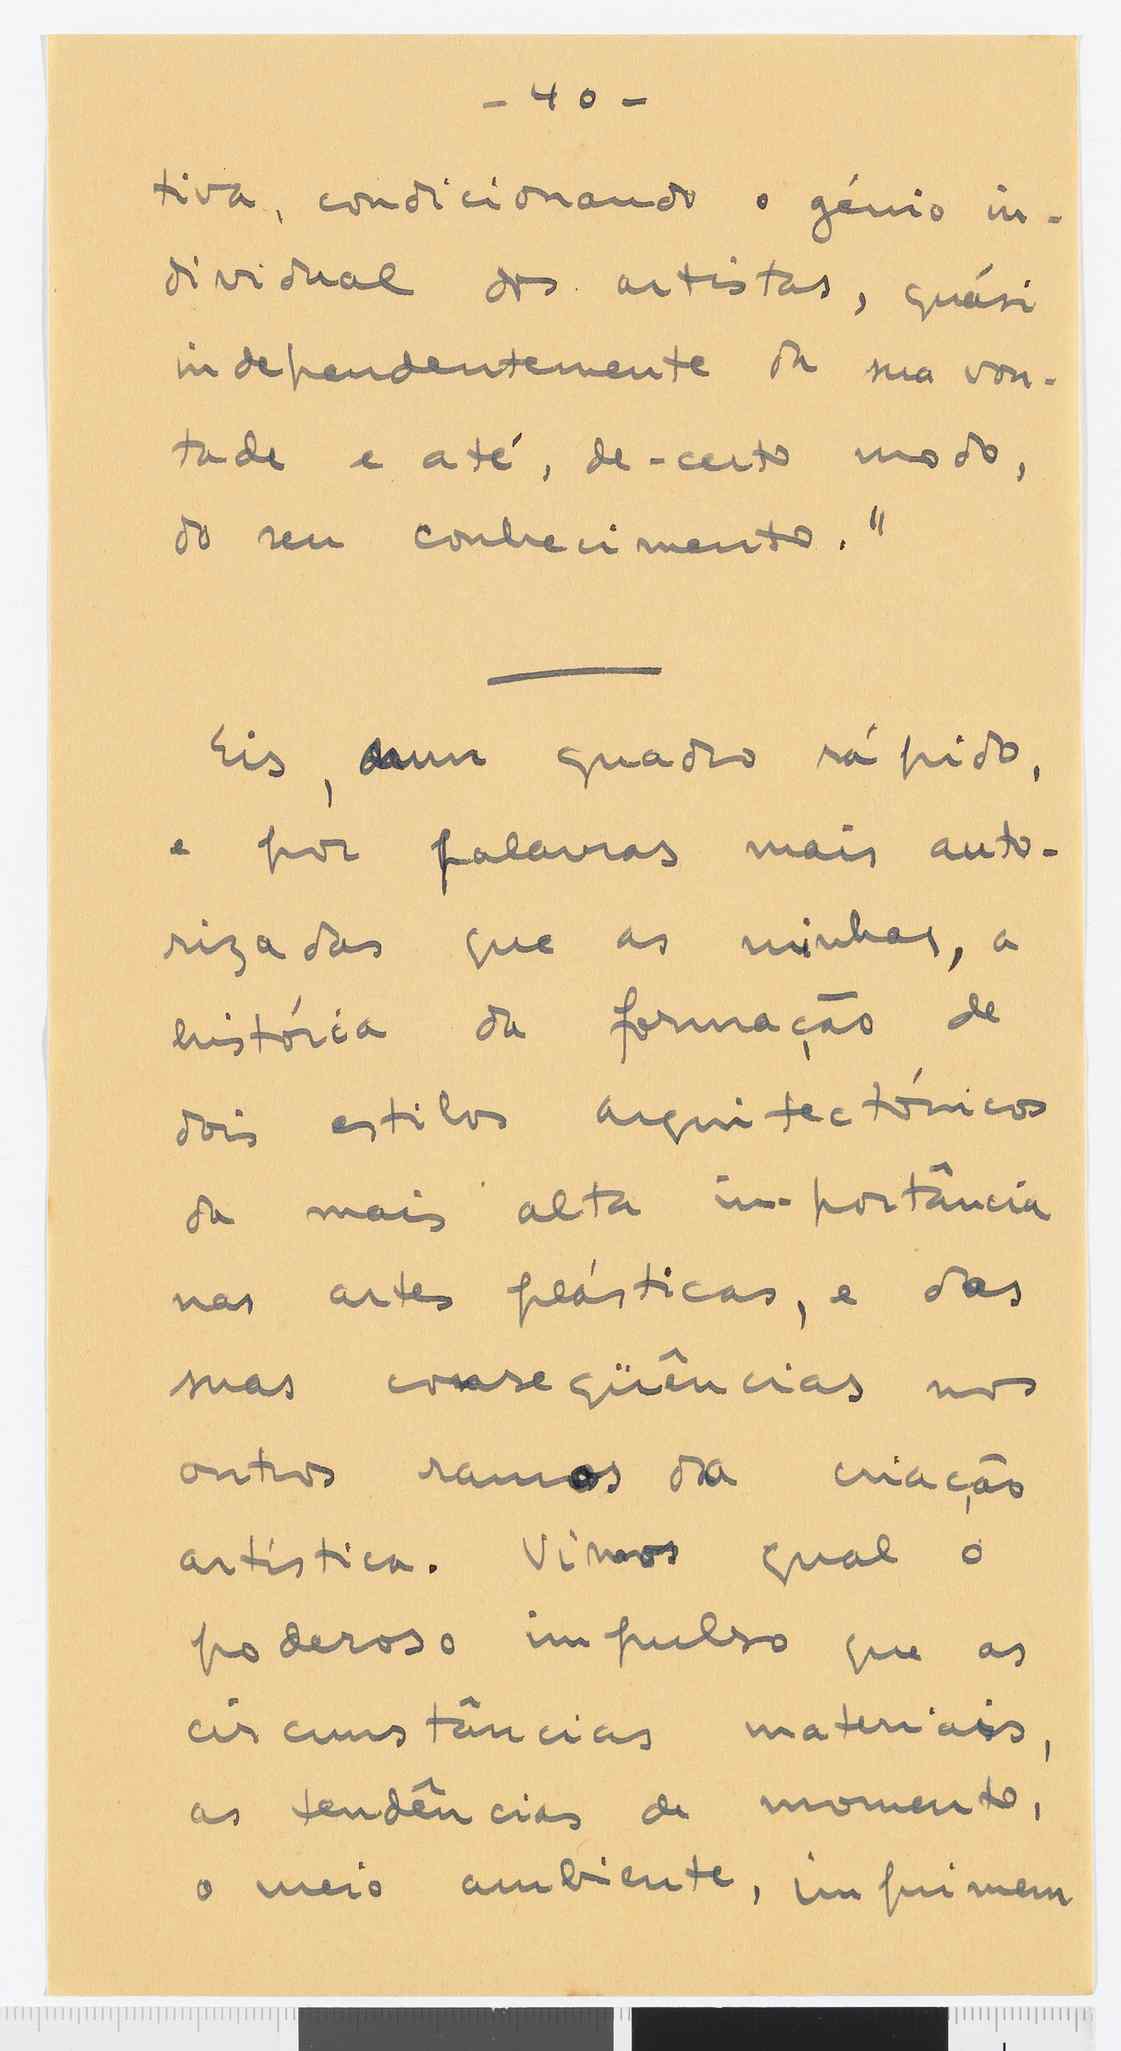 - 40 -
tiva, condicionando o génio in-
dividual dos artistas, quási
independentemente da sua von-
tade e até, de-certo modo,
do seu conhecimento."
Eis, num quadro rápido,
e por palavras mais auto-
rizadas que as minhas, a
história da formação de
dois estilos arquitectónicos
da mais alta im-portância
nas artes plásticas, e das
suas conseqüências nos
outros ramos da criação
artística. Vimos qual o
poderoso impulso que as
circunstâncias materiais,
as tendências de momento,
o meio ambiente, imprimem